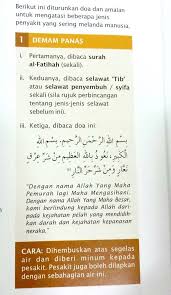 Berikut ini diturunkan doa dan amalan
untuk mengatasi beberapa jenis
penyakit yang sering melanda manusia.
1 DEMAM PANAS
i. Pertamanya, dibaca surah
al-Fatihah (sekali).
ii. Keduanya, dibaca selawat 'Tib'
atau selawat penyembuh / syifa
sekali (sila rujuk perbincangan
tentang jenis-jenis selawat
sebelum ini).
iii. Ketiga, dibaca doa ini:
بِسْمِ اللهِ الرَّحْمَنِ الرَّحِيمِ، بِسْمِ اللهِ
الْكَبِيرِ، نَعُوذُ بِاللهِ الْعَظِيمِ مِنْ شَرِّ عِرْقٍ
نَعَّارٍ وَمِنْ شَرِّ حَرِّ النَّارِ
"Dengan nama Allah Yang Maha
Pemurah lagi Maha Mengasihani.
Dengan nama Allah Yang Maha Besar,
kami berlindung kepada Allah dari-
pada kejahatan pelah yang mendidih-
kan darah dan kejahatan kepanasan
neraka."
CARA: Dihembuskan atas segelas
air dan diberi minum kepada
pesakit. Pesakit juga boleh dilapkan
dengan sebahagian air ini.